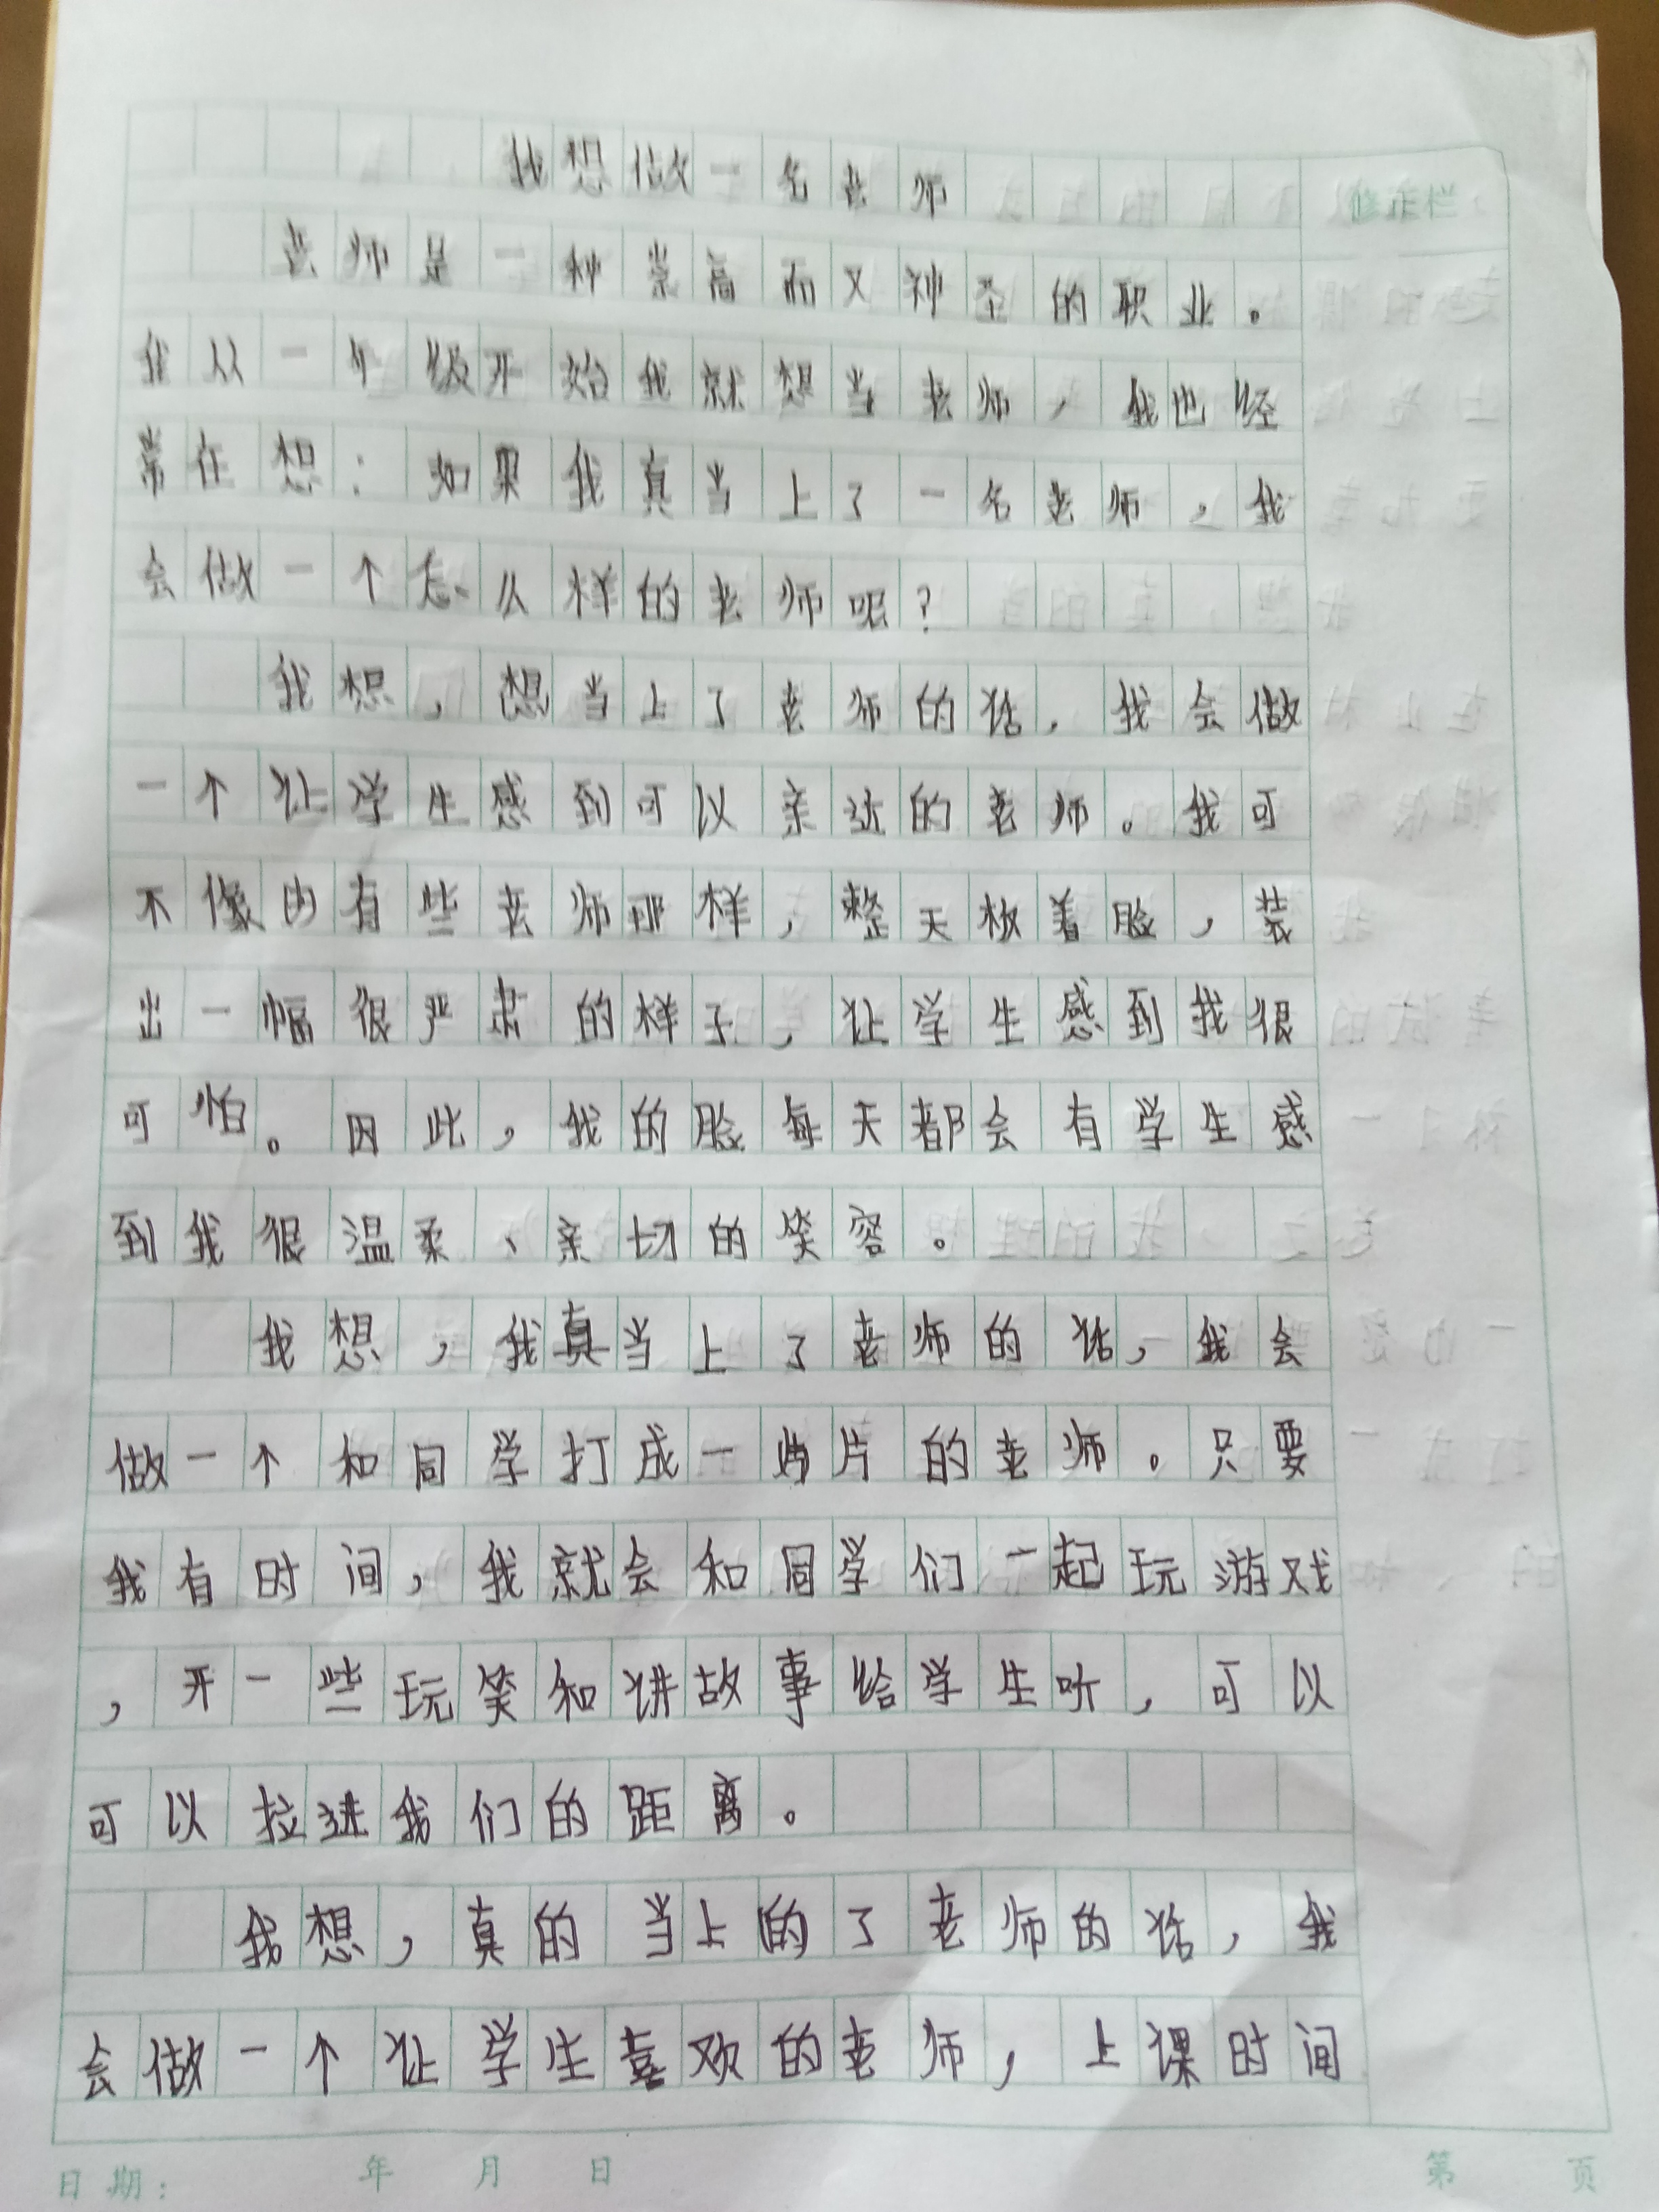 我想做一名老师
修正栏
老师是一种崇高而又神圣的职业。
我从一年级开始我就想当老师，我也经
常在想：如果我真当上了一名老师，我
会做一个怎么样的老师呢？
我想，想当上了老师的话，我会做
一个让学生感到可以亲近的老师。我可
不像的有些老师那样，整天板着脸，装
出一幅很严肃的样子，让学生感到我很
可怕。因此，我的脸每天都会有学生感
到我很温柔、亲切的笑容。
我想，我真当上了老师的话，我会
做一个和同学打成一片的老师。只要
我有时间，我就会和同学们一起玩游戏
，开一些玩笑和讲故事给学生听，可以
可以拉进我们的距离。
我想，真的当上的了老师的话，我
会做一个让学生喜欢的老师，上课时间
日期： 年 月 日 第 页